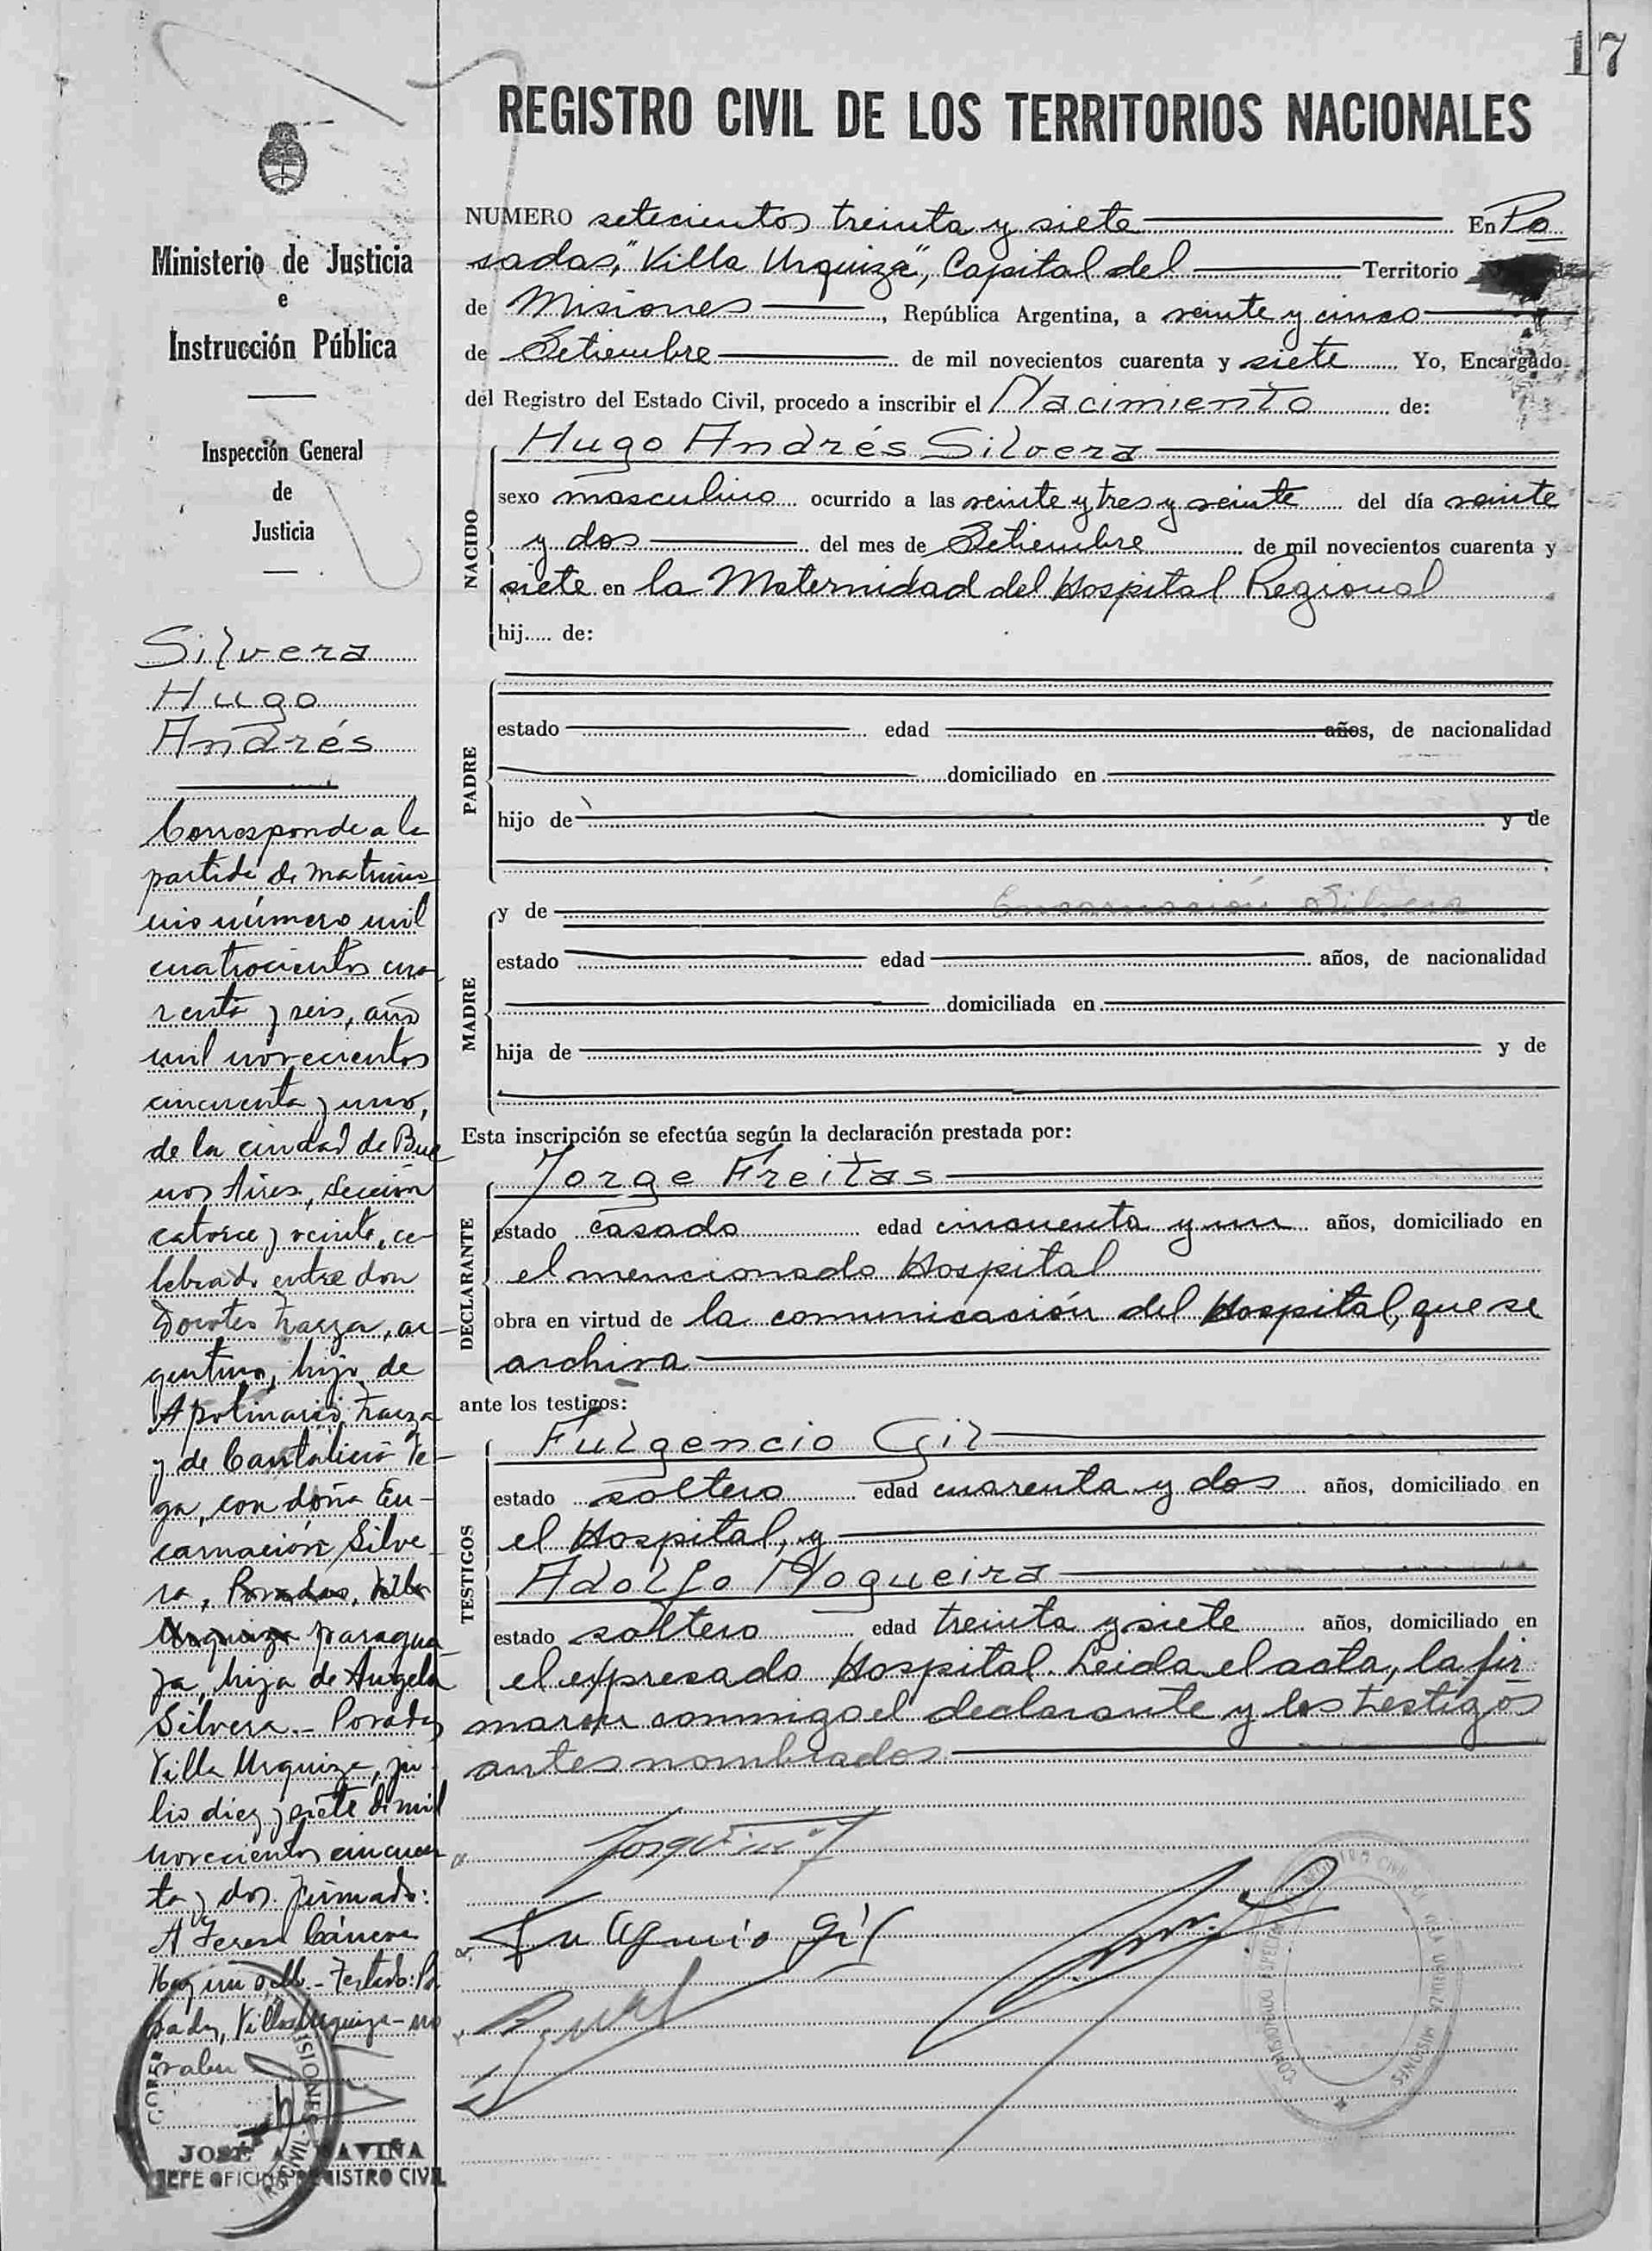 17
REGISTRO CIVIL DE LOS TERRITORIOS NACIONALES
Ministerio de Justicia
e
Instrucción Pública
Inspección General
de
Justicia
Silvera
Hugo
Andrés
Corresponde a la
partida de matrimo-
nio número mil
cuatrocientos cua-
renta y seis, año
mil novecientos
cincuenta y uno,
de la ciudad de Bue
nos Aires, sección
catorce y veinte, ce-
lebrado entre don
ar-
gentino, hijo de
Apolinario
y de Cantalicia Ve-
ga, con doña En-
carnación Silve-
ra, Posadas, Villa
Urquiza paragua
ya, hija de Angela
Silvera.- Posadas
Villa Urquiza, ju-
lio diez y siete de mil
novecientos cincuen
ta y dos. Firmado:
Hay un sello.- Testado: Po
sadas, Villa Urquiza - no
valen
JOSÉ A. VIÑA
JEFE OFICINA REGISTRO CIVIL
NUMERO setecientos treinta y siete En Po
sadas, "Villa Urquiza", Capital del Territorio
de Misiones, República Argentina, a veinte y cinco
de Setiembre de mil novecientos cuarenta y siete Yo, Encargado
del Registro del Estado Civil, procedo a inscribir el Nacimiento de:
NACIDO
Hugo Andrés Silvera
sexo masculino ocurrido a las veinte y tres y veinte del día veinte
y dos del mes de Setiembre de mil novecientos cuarenta y
siete en la Maternidad del Hospital Regional
hij..... de:
PADRE
estado edad años, de nacionalidad
domiciliado en
hijo de y de
MADRE
y de Encarnación Silvera
estado edad años, de nacionalidad
domiciliada en
hija de y de
Esta inscripción se efectúa según la declaración prestada por:
DECLARANTE
Jorge Freitas
estado casado edad cincuenta y un años, domiciliado en
el mencionado Hospital
obra en virtud de la comunicación del Hospital, que se
archiva
ante los testigos:
TESTIGOS
Fulgencio Gil
estado soltero edad cuarenta y dos años, domiciliado en
el Hospital, y
Adolfo Nogueira
estado soltero edad treinta y siete años, domiciliado en
el expresado Hospital. Leida el acta, la fir
maron conmigo el declarante y los testigos
antes nombrados
Fulgencio Gil
REGISTRO CIVIL VILLA URQUIZA MISIONES